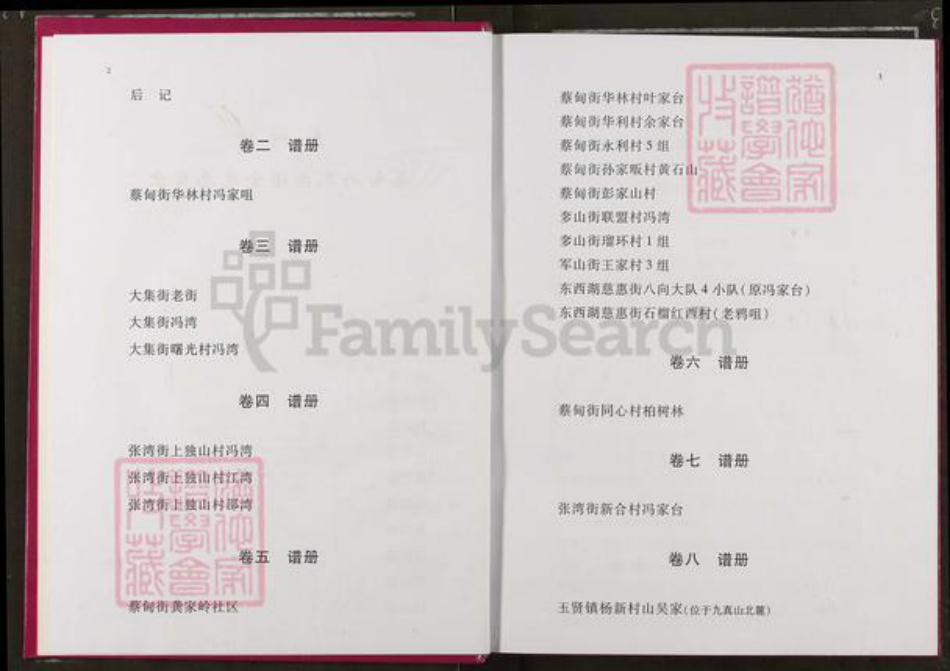 2
后 记
卷二 谱册
蔡甸街华林村冯家咀
卷三 谱册
大集街老街
大集街冯湾
大集街曙光村冯湾
卷四 谱册
张湾街上独山村冯湾
张湾街上独山村江湾
张湾街上独山村邵湾
卷五 谱册
蔡甸街龚家岭社区
蔡甸街华林村叶家台
蔡甸街华利村余家台
蔡甸街永利村5组
蔡甸街孙家畈村黄石山
蔡甸街彭家山村
奓山街联盟村冯湾
奓山街瑠环村1组
军山街王家村3组
东西湖慈惠街八向大队4小队(原冯家台)
东西湖慈惠街石榴红西村(老鸦咀)
卷六 谱册
蔡甸街同心村柏树林
卷七 谱册
张湾街新合村冯家台
卷八 谱册
玉贤镇杨新村山吴家(位于九真山北麓)
FamilySearch